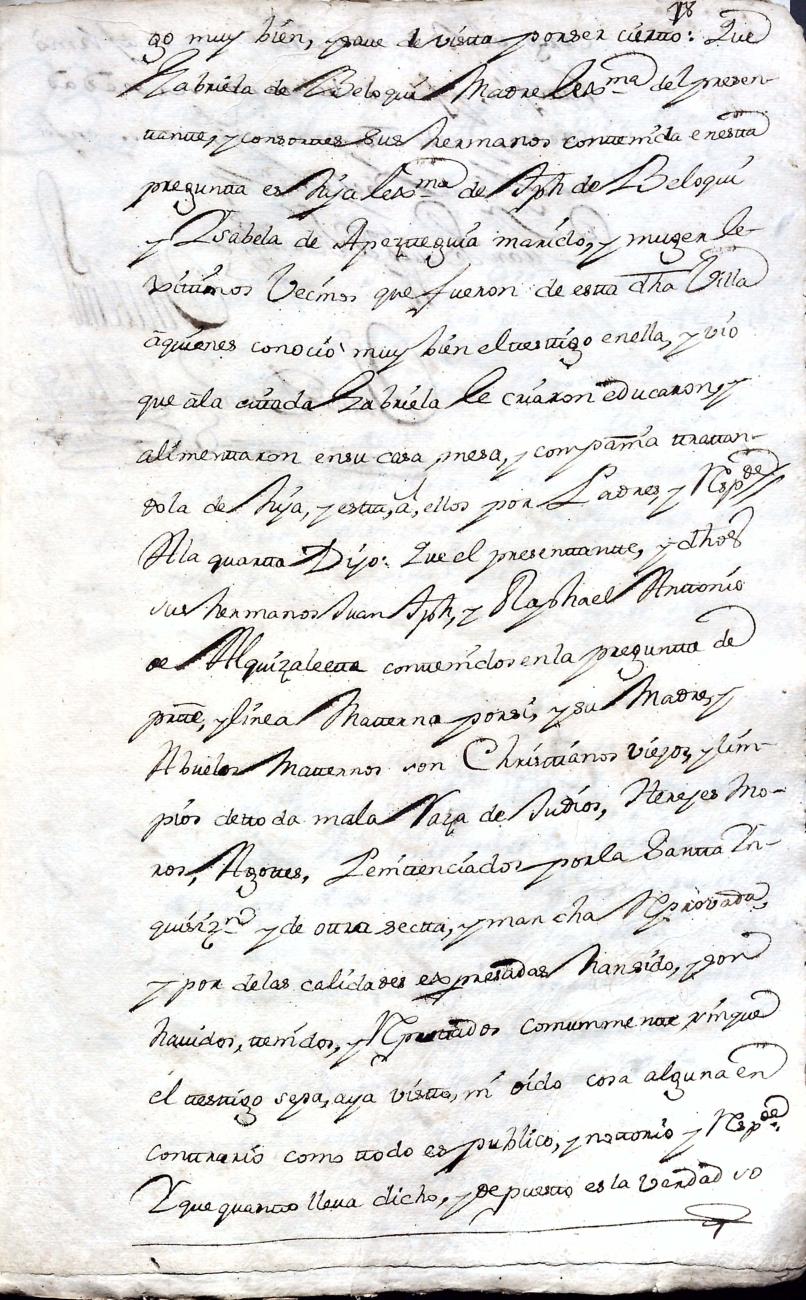 18
go muy bien, y save de vista por ser cierto: Que
Gabriela de Beloqui Madre lexma del presen-
tante, y consortes sus hermanos contenida en esta
pregunta es hija lexma de Jph de Beloqui
y Ysabela de Apezteguia marido, y muger le-
xitimos Vecinos que fueron de esta dha Villa
a quienes conocio muy bien el testigo en ella, y vio
que a la citada Gabriela le criaron educaron, y
alimentaron en su casa mesa, y compañia trattan-
dola de hija, y esta, a, ellos por Padres y Rspde
A la quarta Dijo: Que el presentante, y dhos
sus hermanos Juan Jph, y Raphael Antonio
de Alquizaleta contenidos en la pregunta de
prte, y linea Materna por si, y su Madre, y
Abuelos Maternos son Christianos viejos, y lim-
pios de toda mala Raza de Judios, Herejes Mo-
ros, Agotes, Penitenciados por la Santa Yn-
quisizn y de otra secta, y mancha Reprovada,
y por de las calidades expresadas han sido, y son
havidos, tenidos, y Reputados comunmente, sin que
el testigo sepa, aya visto, ni oido cosa alguna en
contrario como todo es publico, y notorio y Rspde.
Y que quanto lleva dicho, y depuesto es la verdad so